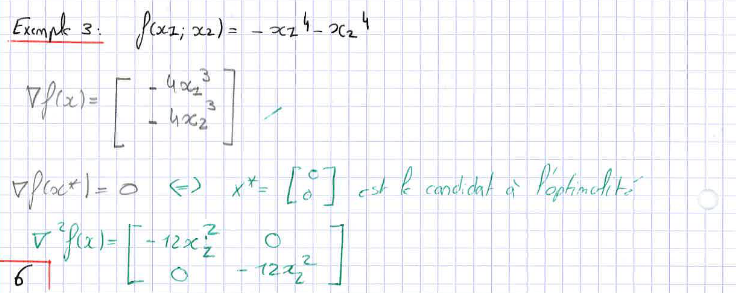 Exemple 3: f(x1; x2) = - x1⁴ - x2⁴
∇f(x) = [ - 4x1³
- 4x2³ ]
∇f(x*) = 0 <=> x* = [ 0 0 ] est le candidat à l'optimalité
∇²f(x) = [ - 12x1² 0
0 - 12x2² ]
6